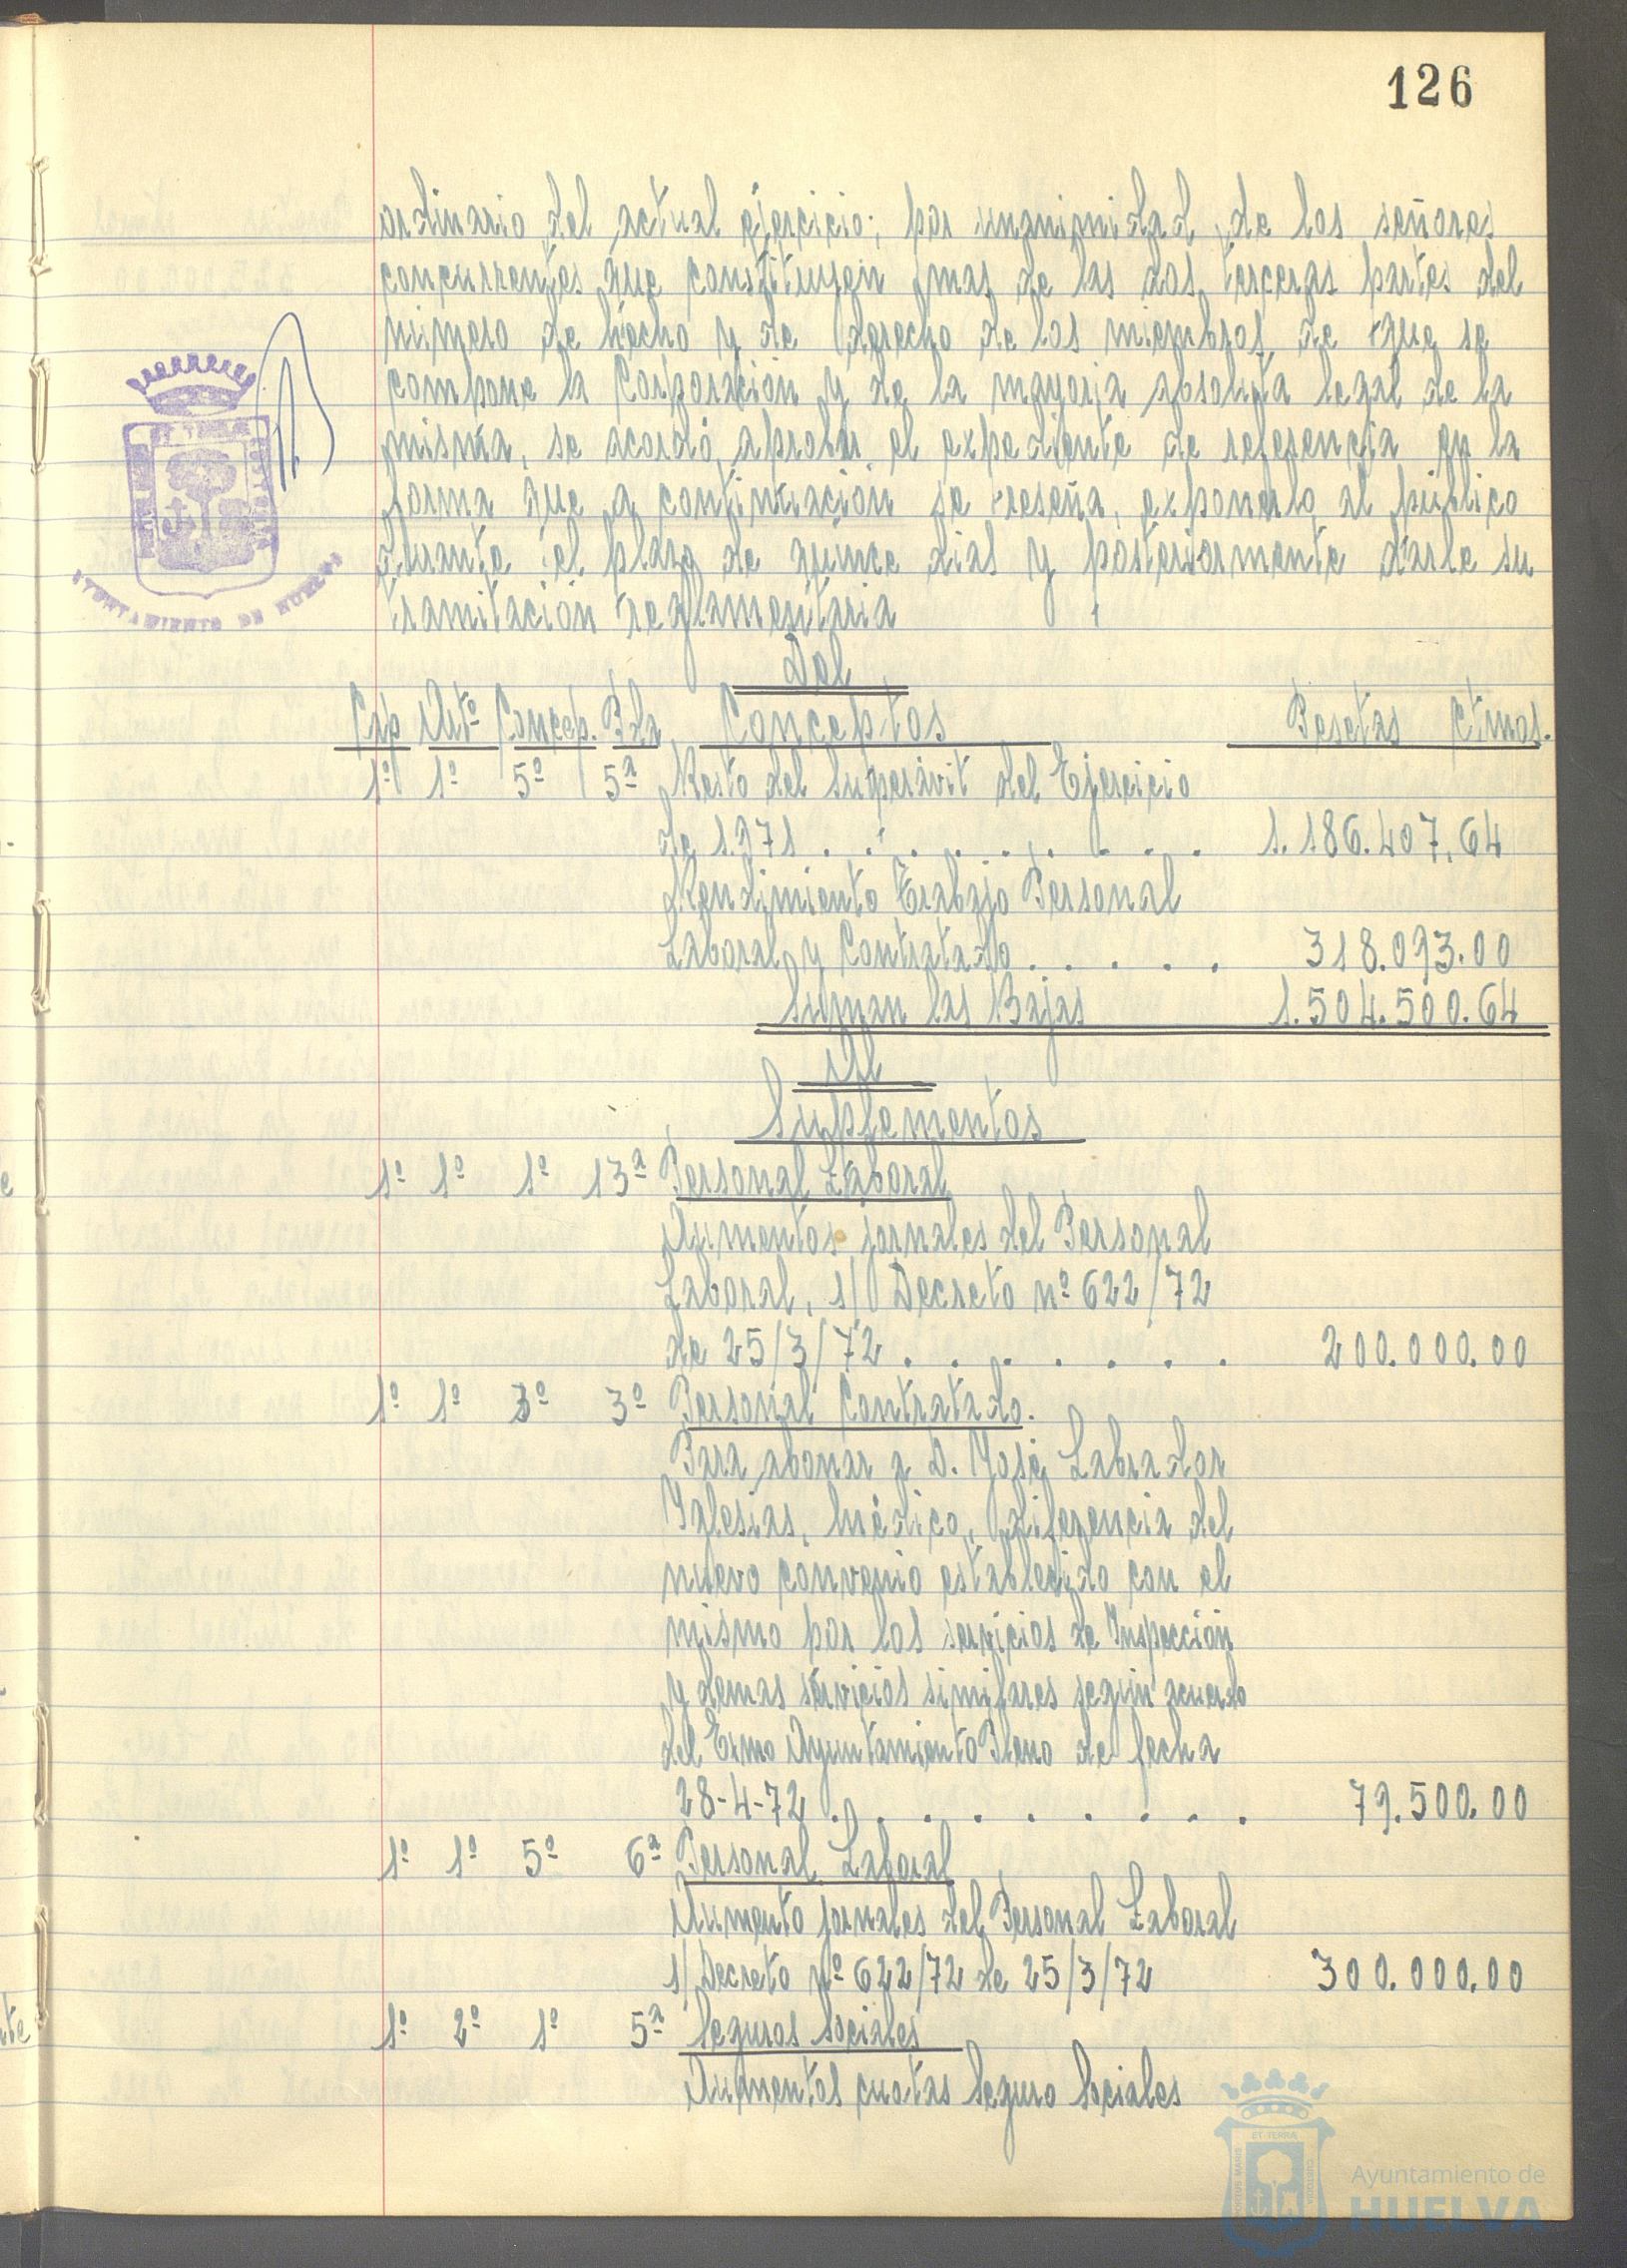 126
ordinario del actual ejercicio; por unanimidad de los señores
concurrentes que constituyen mas de las dos terceras partes del
número de hecho y de derecho de los miembros de que se
compone la Corporación y de la mayoria absoluta legal de la
misma, se acordó aprobar el expediente de referencia en la
forma que a continuación se reseña, exponerlo al público
durante el plazo de quince dias y posteriormente darle su
tramitación reglamentaria
Del
Cap Artº Concep. Pda Conceptos Pesetas Ctmos.
1º 1º 5º 5ª Resto del Superávit del Ejercicio
de 1.971 . . . . . . . . . 1.186.407,64
Rendimiento Trabajo Personal
Laboral y Contratado . . . . . 318.093.00
Suman las Bajas 1.504.500.64
Al
Suplementos
1º 1º 1º 13ª Personal Laboral
Aumentos jornales del Personal
Laboral, s/ Decreto nº 622/72
de 25/3/72 . . . . . . . 200.000.00
1º 1º 3º 3º Personal Contratado.
Para abonar a D. José Labrador
Yglesias, Médico, diferencia del
nuevo convenio establecido con el
mismo por los servicios de Inspección
y demas servicios similares según acuerdo
del Exmo Ayuntamiento Pleno de fecha
28-4-72 . . . . . . . . . 79.500.00
1º 1º 5º 6ª Personal Laboral
Aumento jornales del Personal Laboral
s/ Decreto nº 622/72 de 25/3/72 300.000.00
1º 2º 1º 5ª Seguros Sociales
Aumentos cuotas Seguro Sociales
AYUNTAMIENTO DE HUELVA
ET TERRA
PORTUS MARIS
CUSTODIA
Ayuntamiento de
HUELVA